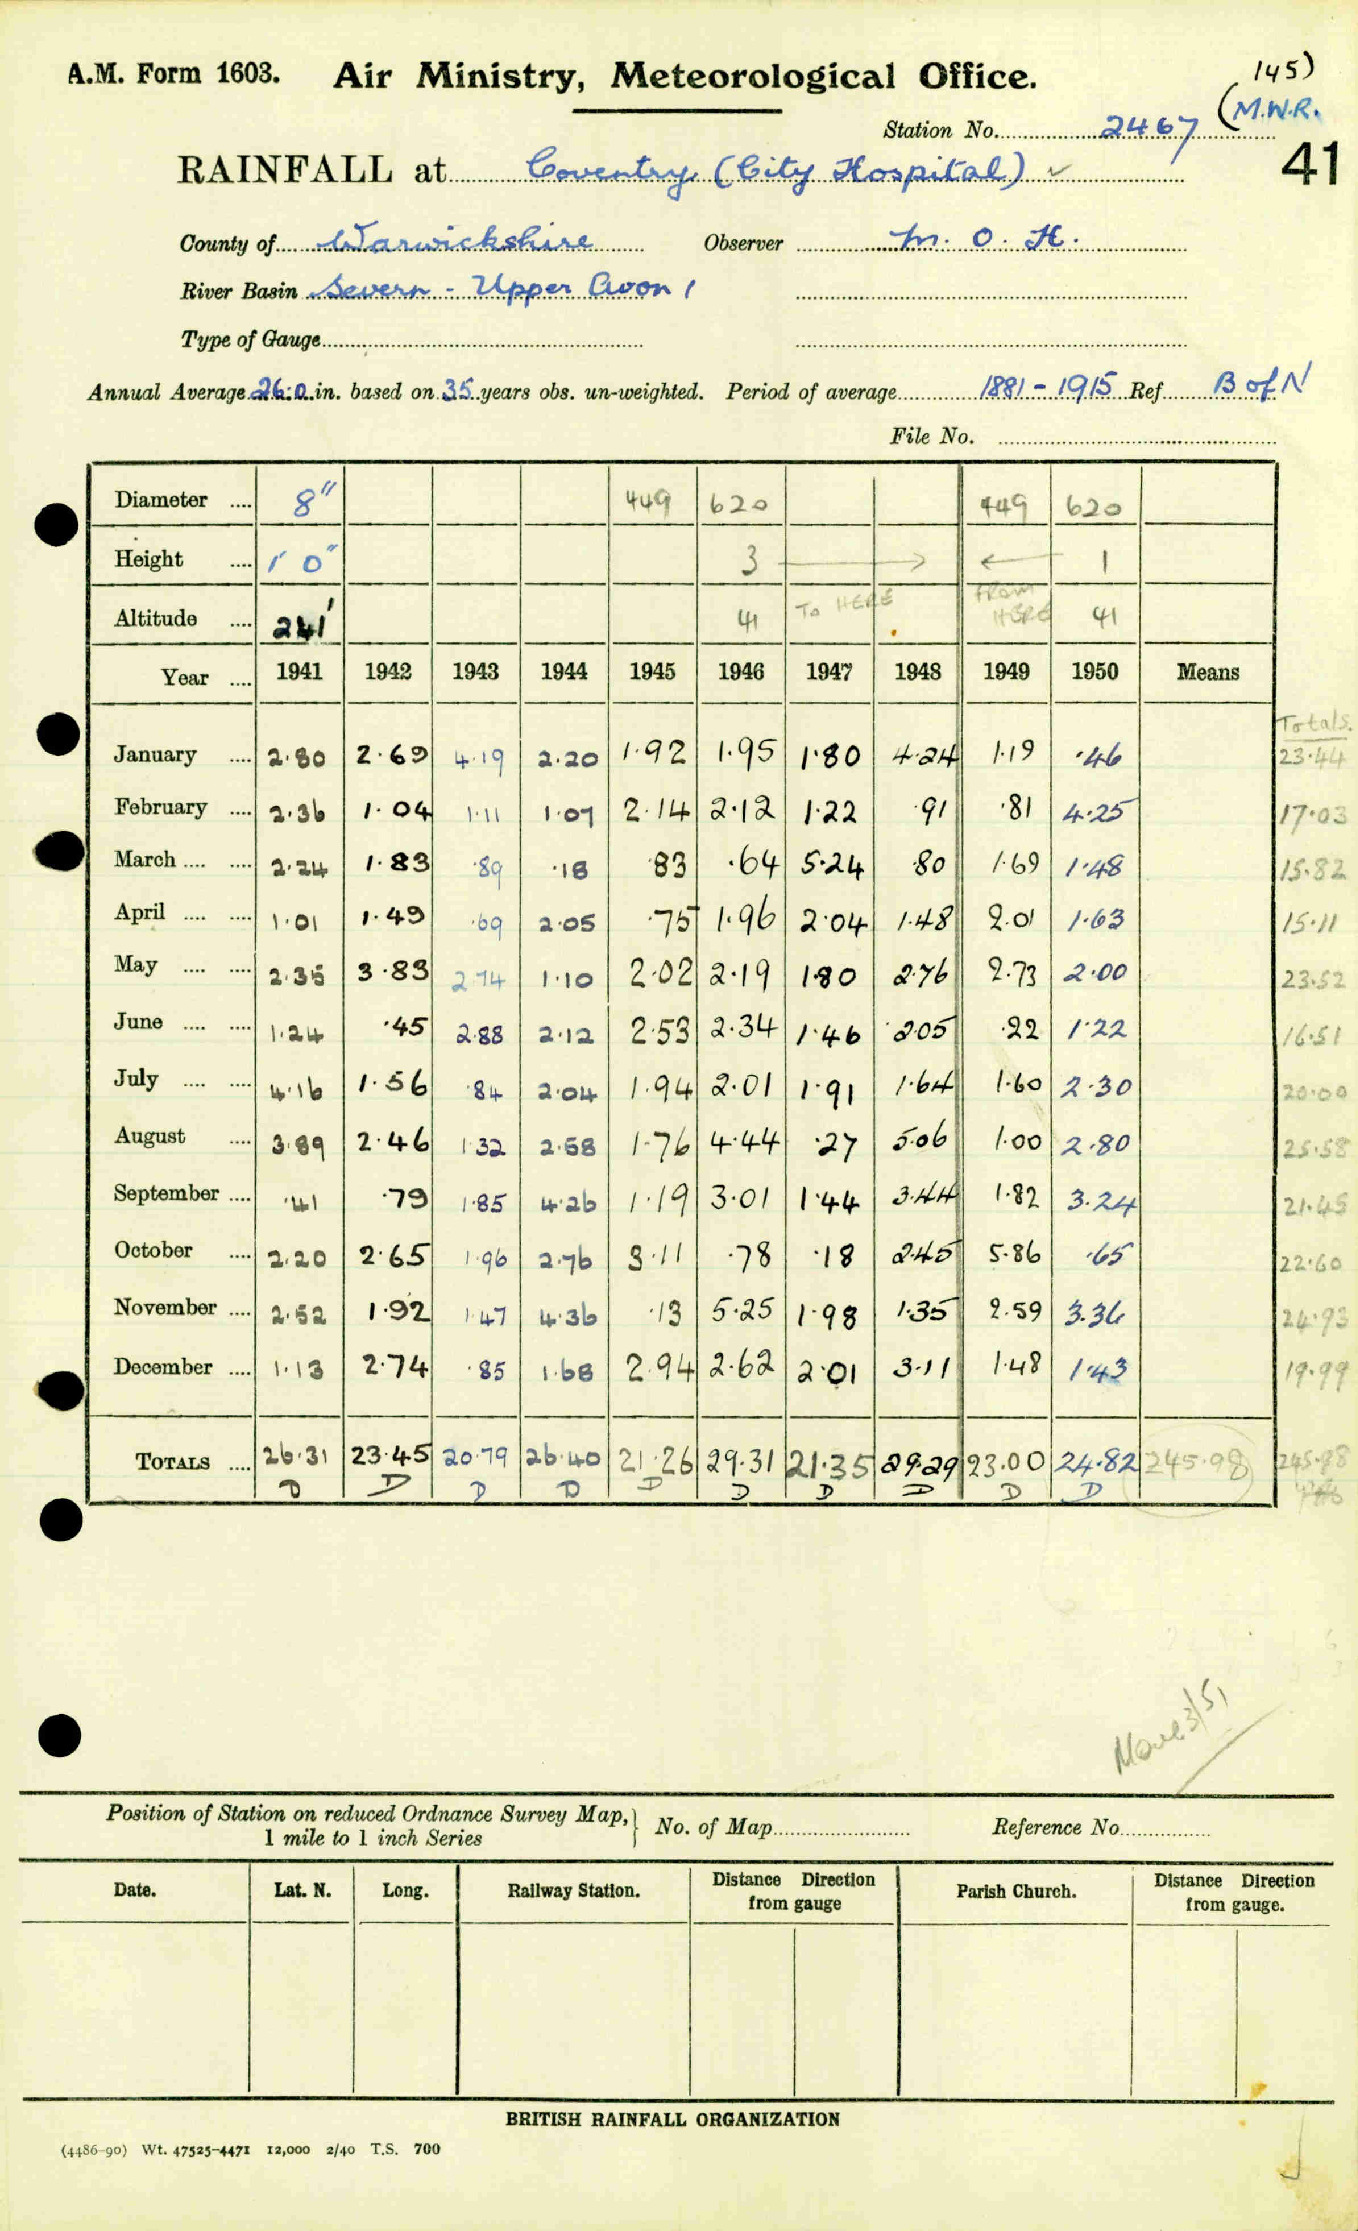 A.M. Form 1603. Air Ministry, Meteorological Office. 145)
Station No. 2467 (M.W.R.
RAINFALL at Coventry (City Hospital) ✓ 41
County of Warwickshire Observer M. O. H.
River Basin Severn - Upper Avon 1
Type of Gauge
Annual Average 26.0 in. based on 35 years obs. un-weighted. Period of average 1881 - 1915 Ref B of N
File No.
Diameter .... 8" 449 620 449 620
Height .... 1' 0" 3 → ← 1
Altitude .... 241' 41 TO HERE FROM HERE 41
Year .... 1941 1942 1943 1944 1945 1946 1947 1948 1949 1950 Means
Totals.
January .... 2.80 2.69 4.19 2.20 1.92 1.95 1.80 4.24 1.19 .46 23.44
February .... 2.36 1.04 1.11 1.07 2.14 2.12 1.22 .91 .81 4.25 17.03
March .... .... 2.24 1.83 .89 .18 .83 .64 5.24 .80 1.69 1.48 15.82
April .... .... 1.01 1.49 .69 2.05 .75 1.96 2.04 1.48 2.01 1.63 15.11
May .... .... 2.35 3.83 2.74 1.10 2.02 2.19 1.80 2.76 2.73 2.00 23.52
June .... .... 1.24 .45 2.88 2.12 2.53 2.34 1.46 2.05 .22 1.22 16.51
July .... .... 4.16 1.56 .84 2.04 1.94 2.01 1.91 1.64 1.60 2.30 20.00
August .... 3.89 2.46 1.32 2.58 1.76 4.44 .27 5.06 1.00 2.80 25.58
September .... .41 .79 1.85 4.26 1.19 3.01 1.44 3.44 1.82 3.24 21.45
October .... 2.20 2.65 1.96 2.76 3.11 .78 .18 2.45 5.86 .65 22.60
November .... 2.52 1.92 1.47 4.36 .13 5.25 1.98 1.35 2.59 3.36 24.93
December .... 1.13 2.74 .85 1.68 2.94 2.62 2.01 3.11 1.48 1.43 19.99
TOTALS .... 26.31 23.45 20.79 26.40 21.26 29.31 21.35 29.29 23.00 24.82 245.98 245.98
D D D D D D D D D D
Move 3/51
Position of Station on reduced Ordnance Survey Map, } No. of Map Reference No.
1 mile to 1 inch Series
Date. Lat. N. Long. Railway Station. Distance Direction from gauge Parish Church. Distance Direction from gauge.
BRITISH RAINFALL ORGANIZATION
(4486-90) Wt. 47525-4471 12,000 2/40 T.S. 700